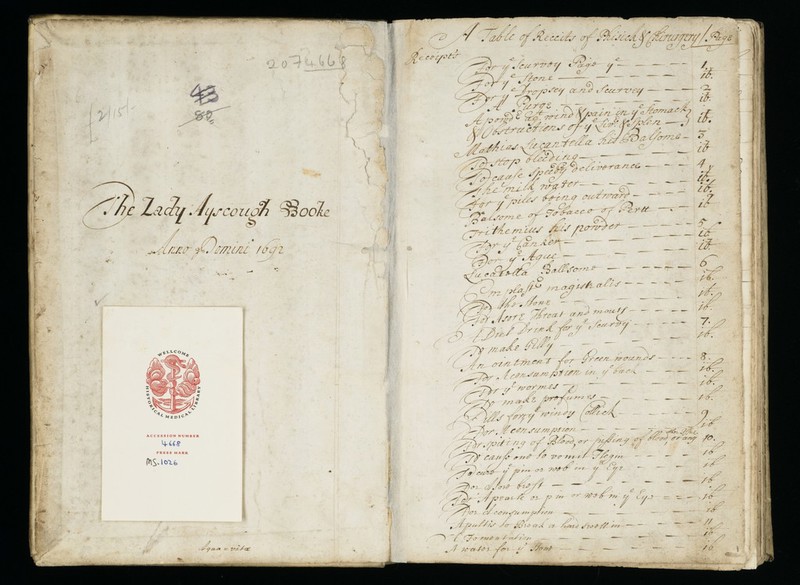 2074668
43
80
2/15/-
The Lady Ayscough Booke
Anno Domini 1692
WELLCOME
HISTORICAL MEDICAL LIBRARY
ACCESSION NUMBER
4668
PRESS MARK
MS.1026
A Table of Receits of Phisick & Chirurgery / Page
Receipts
For yᵉ Scurvey Page yᵉ 1
For yᵉ Stone ib.
For yᵉ Dropsey and Scurvey 2
A Purge ib.
A powdʳ agᵗ wind & pain in yᵉ Stomack
& Obstructions of yᵉ Livʳ & Splen ib.
Mathias Lucantella his Balsome 3
To stop bleeding ib
To cause speedy deliverance 4
The milk water ib.
For yᵉ piles being outward ib.
Balsome of Tobacco of Peru
Trithemius his powder
For yᵉ Canker 5
For yᵉ Ague ib
Lucatella Ballsome ib
Emplastʳ magistralis 6
For the Stone ib.
For A sore Throat and mouth ib.
A Diet Drink for yᵉ Scurvy 7.
To make Jelly ib.
An ointment for Green wounds 8.
For A consumption in yᵉ back ib.
For yᵉ wormes ib.
To make perfumes ib.
Pills for yᵉ windy Collick 9
For A consumption ib
For spiting of Blood or pissing of blood or any 10.
To cause one to vomit Flegm ib
To cure yᵉ pin or web in yᵉ Eye ib
For A sore brest ib
For A pearle or pin or web in yᵉ Eye ib
For A consumption ib
A pultis to Break a hard swelling 11
A Fomentation ib
A water for yᵉ Stone ib